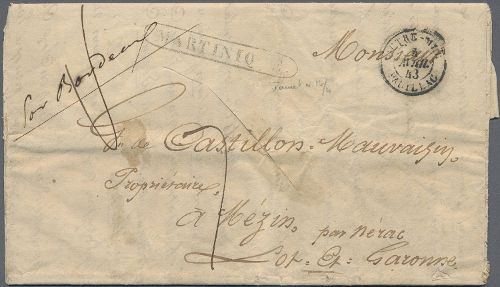 Par Bordeaux
MARTINIQ
Monsieur
OUTRE-MER
AVRIL
43
PAUILLAC
A. de Castillon-Mauvaisin,
Propriétaire,
à Mézin, par Nérac
Lot-Et-Garonne